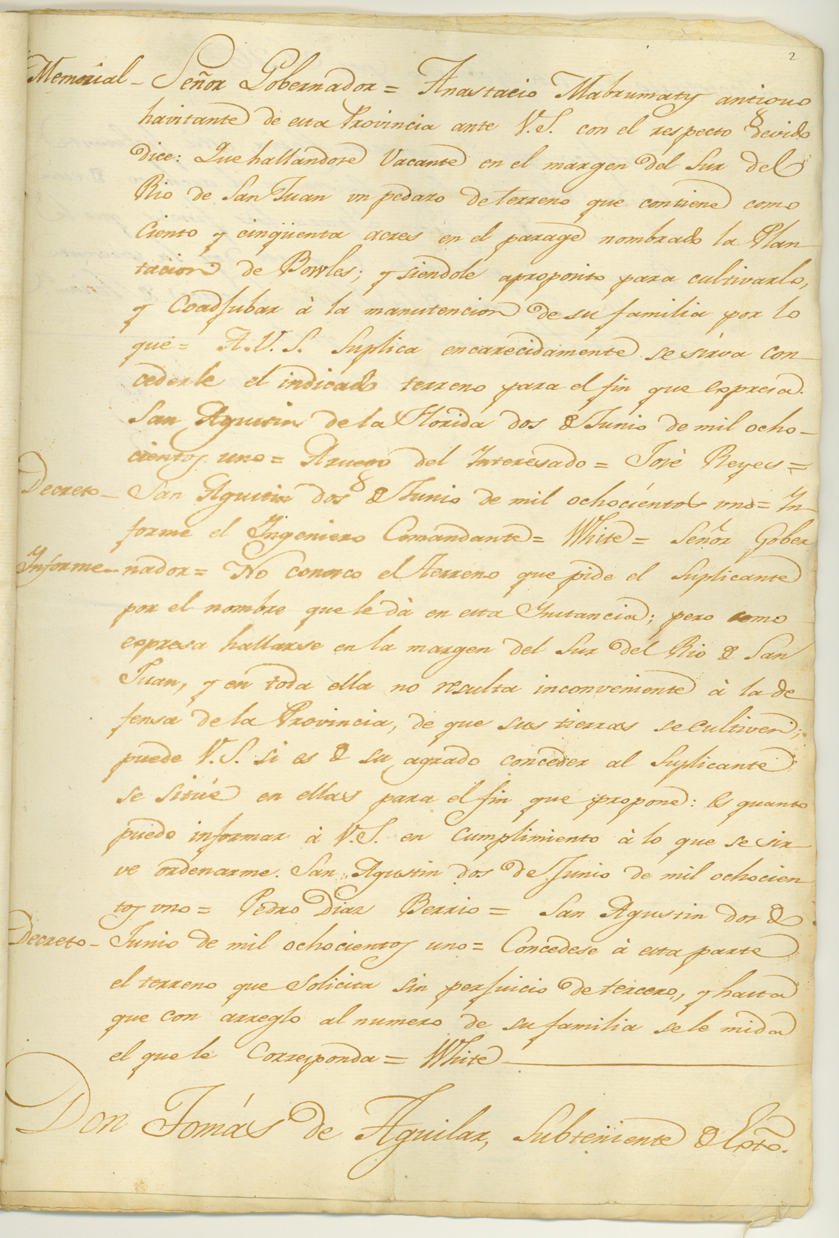 2
Memorial – Señor Gobernador = Anastacio Mabrumaty antiguo
havitante de esta Provincia ante V.S. con el respecto devido
dice: Que hallandose Vacante en el margen del Sur del
Rio de San Juan un pedazo de terreno que contiene como
Ciento y cinqüenta acres en el parage nombrado la Plan-
tacion de Bowles; y siendole aproposito para cultivarlo,
y Coadjubar à la manutencion de su familia por lo
que = A.V.S. Suplica encarecidamente se sirva con-
cederle el indicado terreno para el fin que expresa.
San Agustin de la Florida dos de Junio de mil ocho-
cientos uno = Aruego del Interesado = José Reyes =
Decreto – San Agustin dos de Junio de mil ochocientos uno = In-
forme el Ingeniero Comandante = White = Señor Gober
Informe – nador = No conosco el terreno que pide el Suplicante
por el nombre que le dà en esta Instancia; pero como
expresa hallarse en la margen del Sur del Rio de San
Juan, y en toda ella no resulta inconveniente à la de
fensa de la Provincia, de que sus tierras se cultiven;
puede V.S. si es de su agrado conceder al Suplicante
se sitúe en ellas para el fin que propone: Es quanto
puedo informar à V.S. en Cumplimiento à lo que se sir-
ve ordenarme. San Agustin dos de Junio de mil ochocien
tos uno = Pedro Diaz Berrio = San Agustin dos de
Decreto – Junio de mil ochocientos uno = Concedese à esta parte
el terreno que solicita sin perjuicio de tercero, y hasta
que con arreglo al numero de su familia se le mida
el que le Corresponda = White
Don Tomás de Aguilar, Subteniente de Exto.